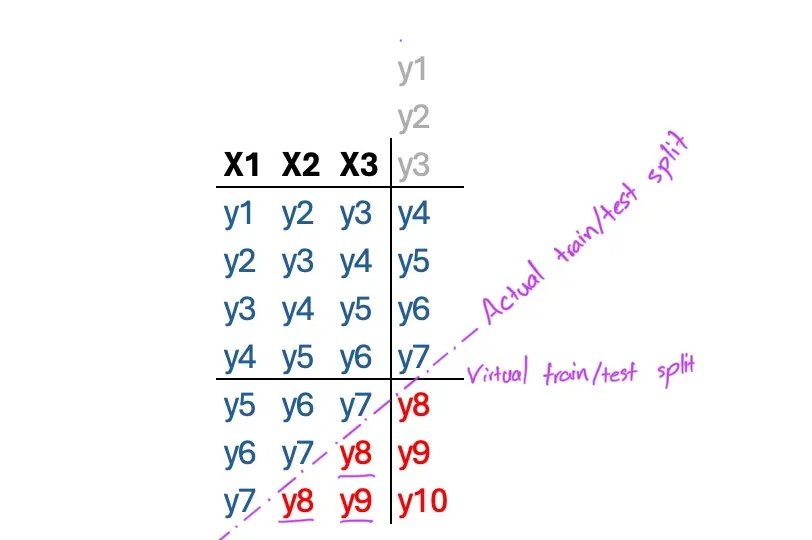 y1
y2
X1 X2 X3 y3
y1 y2 y3 y4
y2 y3 y4 y5
y3 y4 y5 y6
y4 y5 y6 y7
y5 y6 y7 y8
y6 y7 y8 y9
y7 y8 y9 y10
Actual train/test split
Virtual train/test split